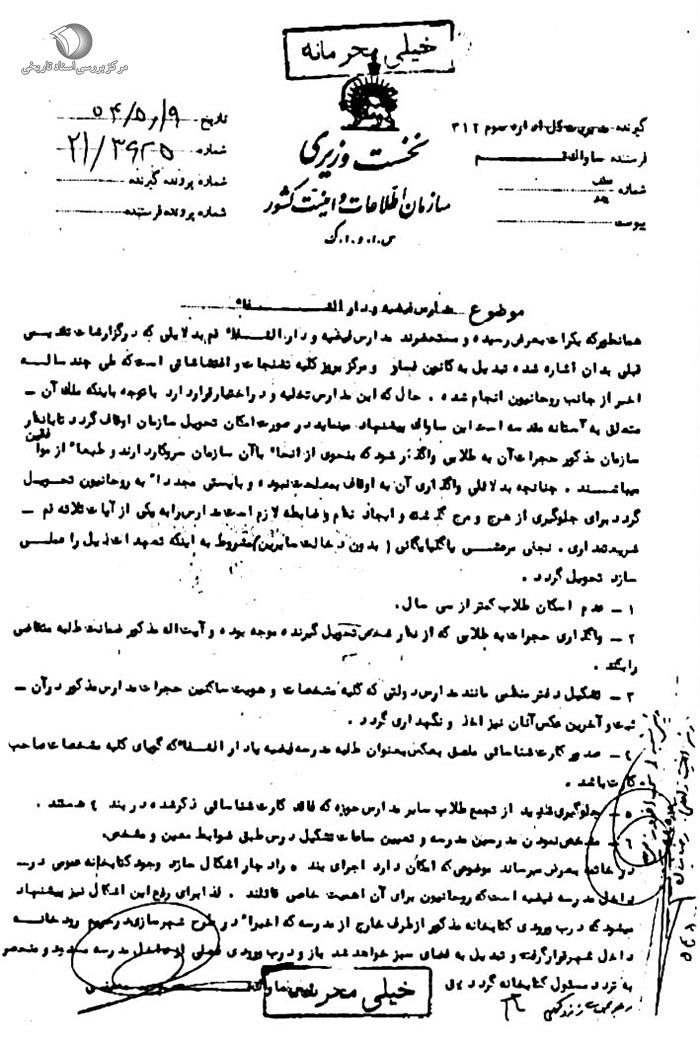 مرکز بررسی اسناد تاریخی
خیلی محرمانه
نخست وزیری
سازمان اطلاعات و امنیت کشور
س.ا.و.ا.ک
گیرنده مدیریت کل اداره سوم ۳۱۲
فرستنده ساواک قم
شماره
پیوست
تاریخ ۵۴/۵/۱۹
شماره ۲۱/۳۹۲۵
شماره پرونده گیرنده
شماره پرونده فرستنده
موضوع مدارس فیضیه و دارالشفاء
همانطوریکه بکرات بعرض رسیده و مستحضرند مدارس فیضیه و دارالشفاء قم بدلایلی که در گزارشات تقدیمی
قبلی بدان اشاره شده تبدیل به کانون فساد و مرکز بروز کلیه تشنجات و اغتشاشاتی است که طی چند ساله
اخیر از جانب روحانیون انجام شده . حال که این مدارس تخلیه و در اختیار قرار دارد با توجه باینکه ملک آن -
متعلق به آستانه مقدسه است این ساواک پیشنهاد مینماید در صورت امکان تحویل سازمان اوقاف گردد تا بانظر
سازمان مذکور حجرات آن به طلابی واگذار شود که بنحوی از انحاء باآن سازمان سروکار دارند و طبعاً از موافقین
میباشند . چنانچه بدلائلی واگذاری آن به اوقاف بمصلحت نبوده و بایستی مجدداً به روحانیون تحویل
گردد برای جلوگیری از هرج و مرج گذشته و ایجاد نظم و ضابطه لازم است مدارس را به یکی از آیات ثلاثه قم -
شریعتمداری . نجفی مرعشی یا گلپایگانی ( بدون دخالت سایرین) مشروط به اینکه تعهدات ذیل را عملی
سازد تحویل گردد .
۱ - عدم اسکان طلاب کمتر از سی سال.
۲ - واگذاری حجرات به طلابی که از نظر شخص تحویل گیرنده موجه بوده و آیت اله مذکور ضمانت طلبه متقاضی
را بکند .
۳ - تشکیل دفتر منظمی مانند مدارس دولتی که کلیه مشخصات و هویت ساکنین حجرات مدارس مذکور در آن -
ثبت و آخرین عکس آنان نیز اخذ و نگهداری گردد .
۴ - صدور کارت شناسائی ملصق بعکس بعنوان طلبه مدرسه فیضیه یا دارالشفاء که گویای کلیه مشخصات صاحب
کارت باشد .
۵ - جلوگیری شدید از تجمع طلاب سایر مدارس حوزه که فاقد کارت شناسائی ذکر شده در بند ۴ هستند .
۶ - مشخص نمودن مدرسین مدرسه و تعیین ساعات تشکیل درس طبق ضوابط معین و مشخص.
در خاتمه بعرض میرساند موضوعی که امکان دارد اجرای بند ۵ را دچار اشکال سازد وجود کتابخانه عمومی در -
داخل مدرسه فیضیه است که روحانیون برای آن اهمیت خاص قائلند . لذا برای رفع این اشکال نیز پیشنهاد
میشود که درب ورودی کتابخانه مذکور از طرف خارج از مدرسه که اخیراً در طرح شهرسازی در حریم رودخانه
داخل شهر قرار گرفت و تبدیل به فضای سبز خواهد شد باز و درب ورودی فعلی از داخل مدرسه مسدود و منحصر
به تردد مسئول کتابخانه گردد
خیلی محرمانه